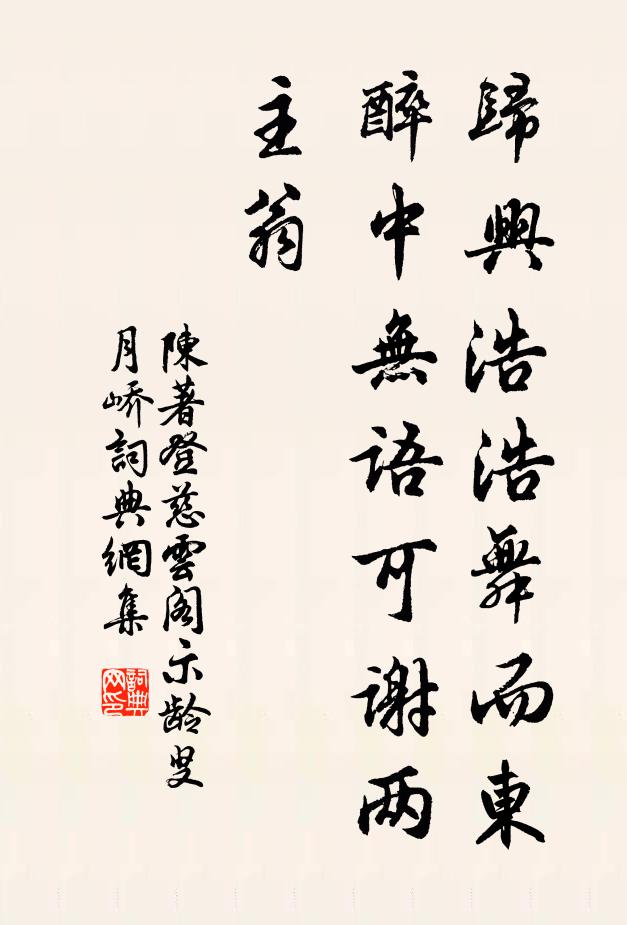 歸興浩浩舞而東
醉中無語可謝两
主翁
陳著登慈雲阁示龄叟
月峤詞典網集
詞典网印